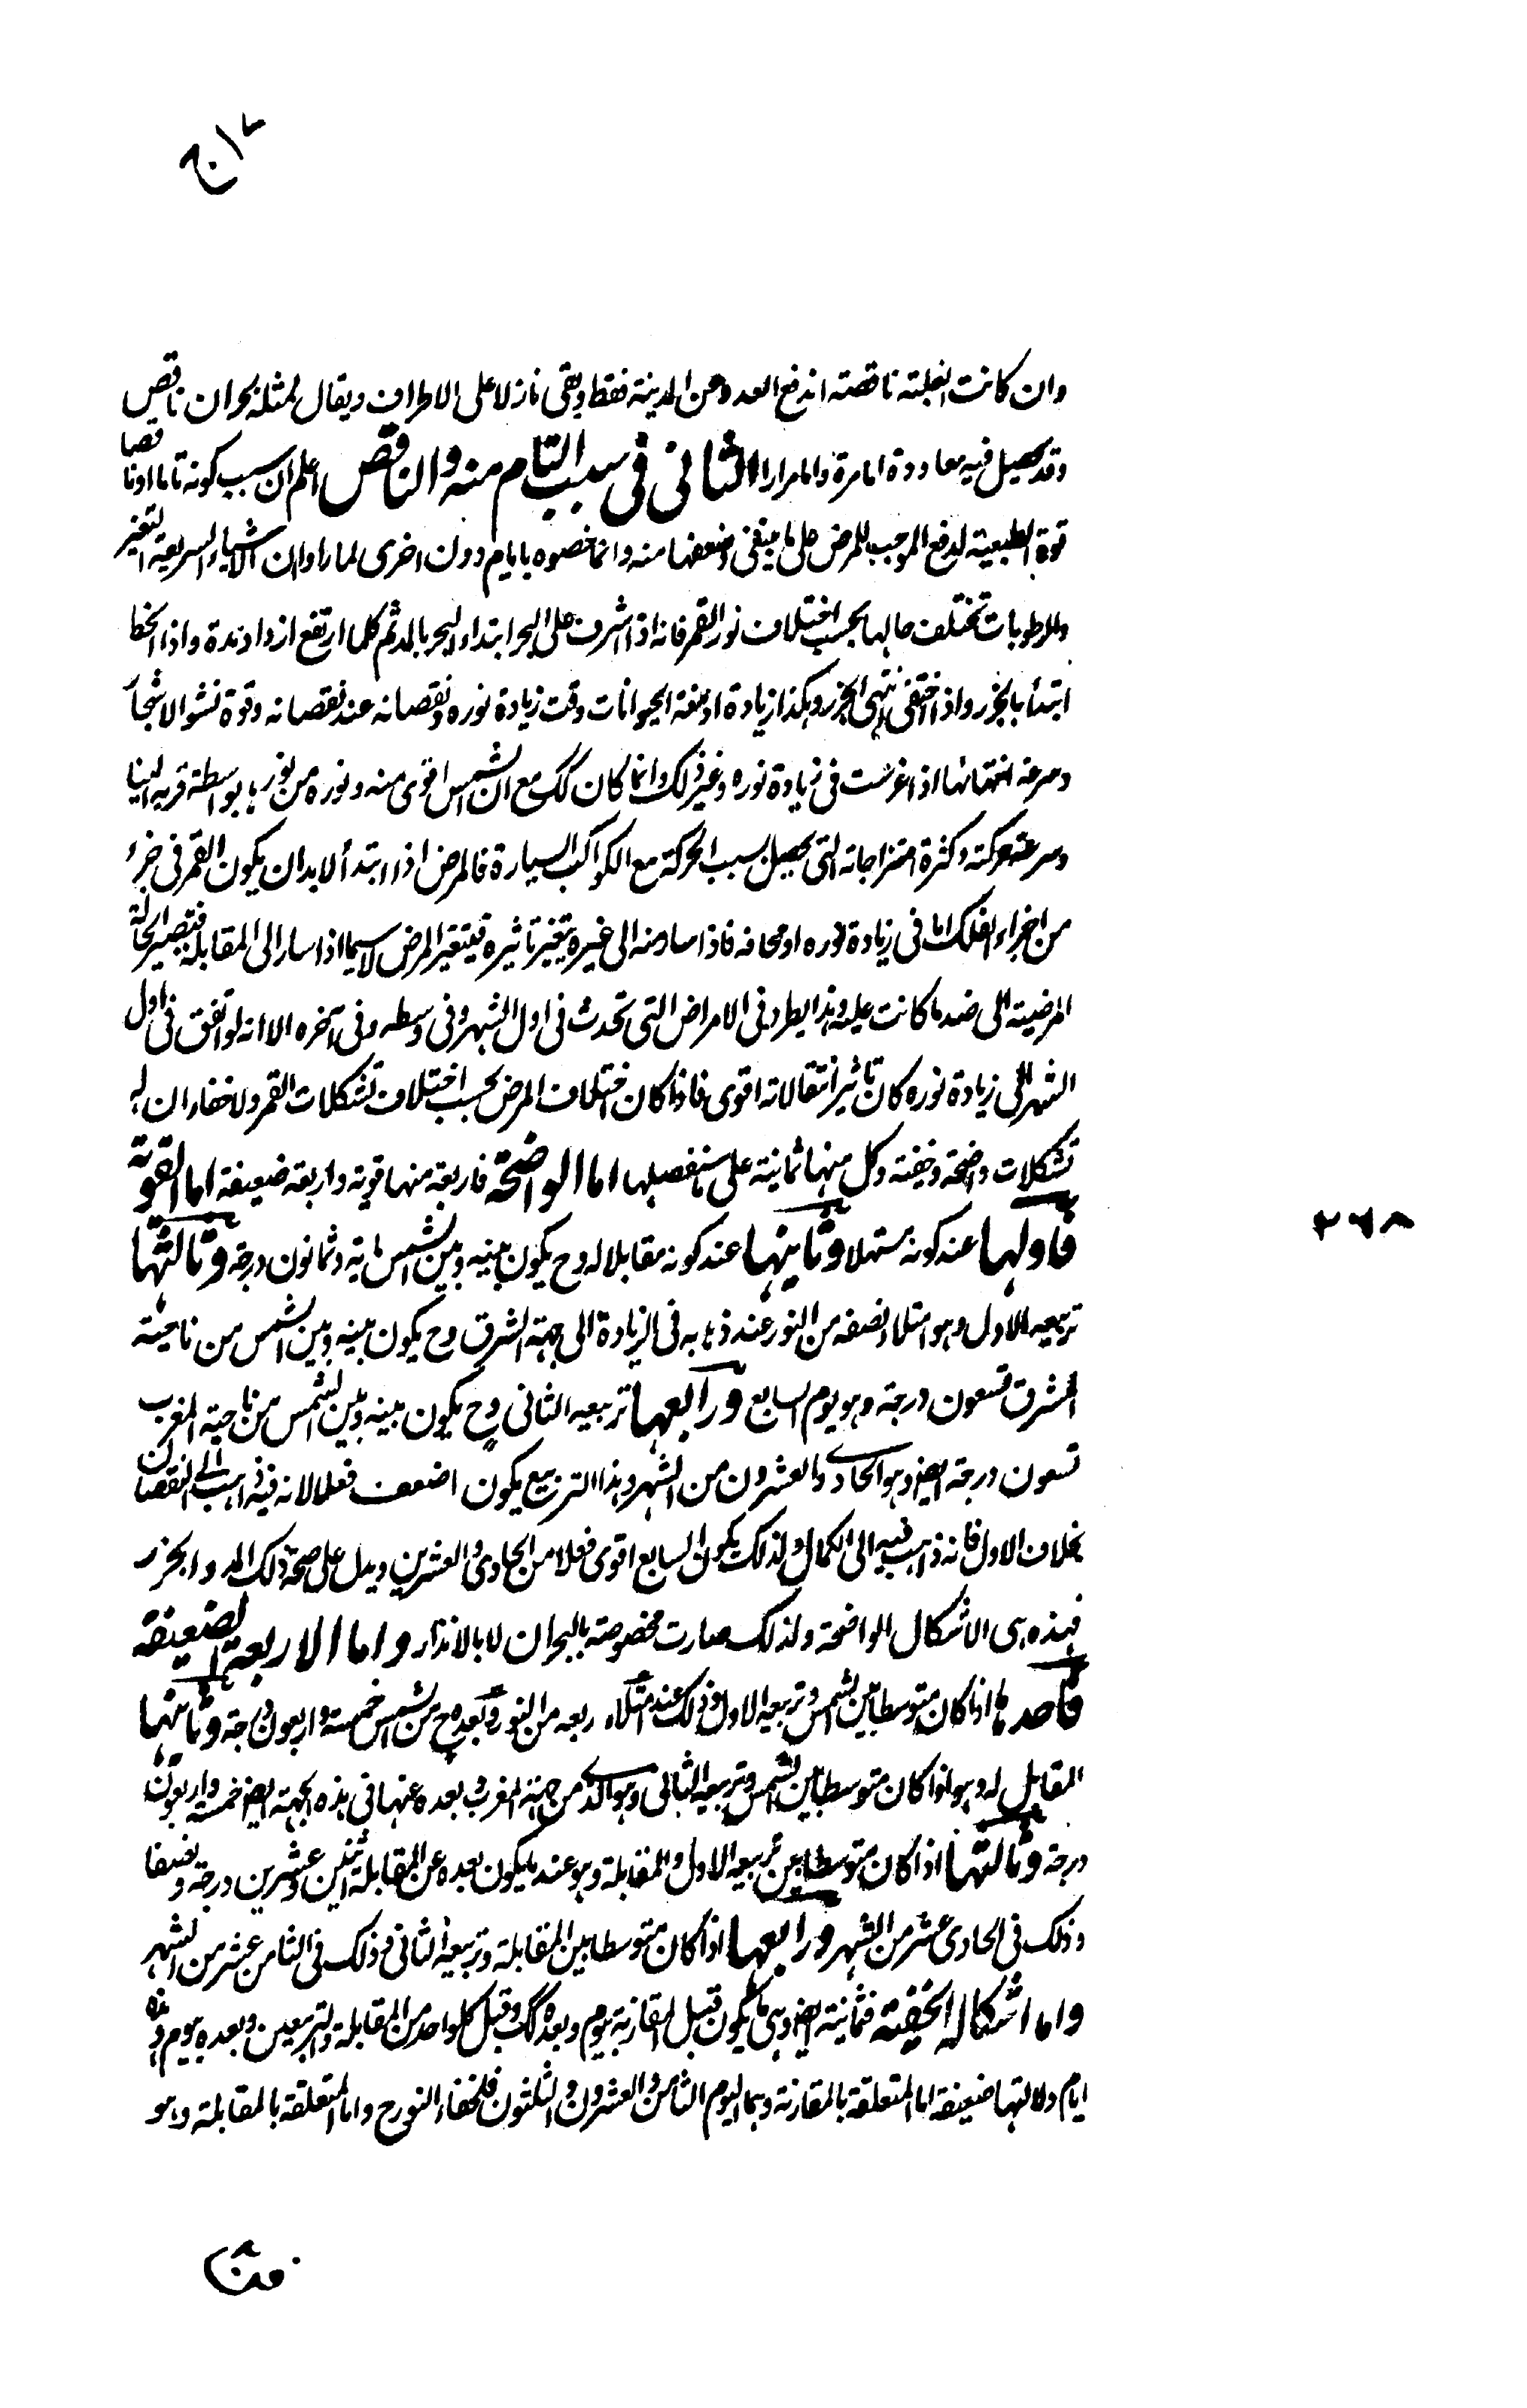 وان كانت الغلبة ناقصة اندفع العدو عن المدينة فقط وبقى نازلا على الاطراف ويقال لمثله بحران ناقص
وقد يحصل فيه معاودة اما مرة واما مرارا الثانى فى سبب التام منه والناقص اعلم ان سبب كونه تاما او ناقصا
قوة الطبيعة لدفع الموجب للمرض على ما ينبغى وضعفها منه وانما خصوه بايام دون اخرى لما راوا ان الاشياء السريعة التغير
والرطوبات تختلف حالها بحسب اختلاف نور القمر فانه اذا اشرف على البحر ابتداء البحر بالمد ثم كلما ارتفع ازداد مده واذا انحط
ابتدأ بالجزر واذا اختفى انتهى الجزر وهكذا زيادة ادمغة الحيوانات وقت زيادة نوره ونقصانه عند نقصانه وقوة نشو الاشجار
وسرعة انتهائها اذا غرست فى زيادة نوره وغير ذلك وانما كان كك مع ان الشمس اقوى منه ونوره من نورها بواسطة قربه الينا
وسرعة حركته وكثرة امتزاجاته التى يحصل بسبب الحركة مع الكواكب السيارة فالمرض اذا ابتدأ لابد ان يكون القمر فى جزء
من اجزاء الفلك اما فى زيادة نوره او محاقه فاذا سار منه الى غيره يتغير تاثيره فيتغير المرض لاسيما اذا سار الى المقابلة فتصير الحالة
المرضية الى ضد ما كانت عليه وهذا يطرد فى الامراض التى تحدث فى اول الشهر وفى وسطه وفى آخره الا انه لو اتفق فى اول
الشهر الى زيادة نوره كان تاثير انتقالاته اقوى فاذا كان اختلاف المرض بحسب اختلاف تشكلات القمر ولا خفاء ان له
تشكلات واضحة وخفية وكل منها ثمانية على ما سنفصلها اما الواضحة فاربعة منها قوية واربعة ضعيفة اما القوية
فاولها عند كونه مستهلا وثانيها عند كونه مقابلا له وح يكون بينه وبين الشمس مائة وثمانون درجة وثالثها
تربيعه الاول وهو امتلاء نصفه من النور عند ذهابه فى الزيادة الى جهة الشرق وح يكون بينه وبين الشمس من ناحية
المشرق تسعون درجة وهو يوم السابع ورابعها تربيعه الثانى وح يكون بينه وبين الشمس من ناحية المغرب
تسعون درجة ايضا وهو الحادى والعشرون من الشهر وهذا التربيع يكون اضعف فعلا لانه فيه ذاهب الى النقصان
بخلاف الاول فانه ذاهب فيه الى الكمال ولذلك يكون السابع اقوى فعلا من الحادى والعشرين ويدل على صحة ذلك المد والجزر
فهذه هى الاشكال الواضحة ولذلك صارت مخصوصة بالبحران لا بالانذار واما الاربعة الضعيفة
فاحدها اذا كان متوسطا بين الشمس وتربيعه الاول وذلك عند امتلاء ربعه من النور وبعده ح من الشمس خمسة واربعون درجة وثانيها
المقابل له وهو اذا كان متوسطا بين الشمس وتربيعه الثانى وهو الذى من جهة المغرب وبعده عنها فى هذه الجهة ايضا خمسة واربعون
درجة وثالثها اذا كان متوسطا بين تربيعه الاول والمقابلة وهو عند ما يكون بعده عن المقابلة اثنين وعشرين درجة ونصفا
وذلك فى الحادى عشر من الشهر ورابعها اذا كان متوسطا بين المقابلة وتربيعه الثانى وذلك فى الثامن عشر من الشهر
واما اشكاله الخفية فثمانية ايضا وهى ما يكون قبل المقارنة بيوم وبعده كك وقبل كلواحد من المقابلة والتربيعين وبعده بيوم وهذه
ايام دلالتها ضعيفة اما المتعلقة بالمقارنة وهما اليوم الثامن والعشرون والثلثون فلخفاء النور ح واما المتعلقة بالمقابلة وهو
٢٦٨